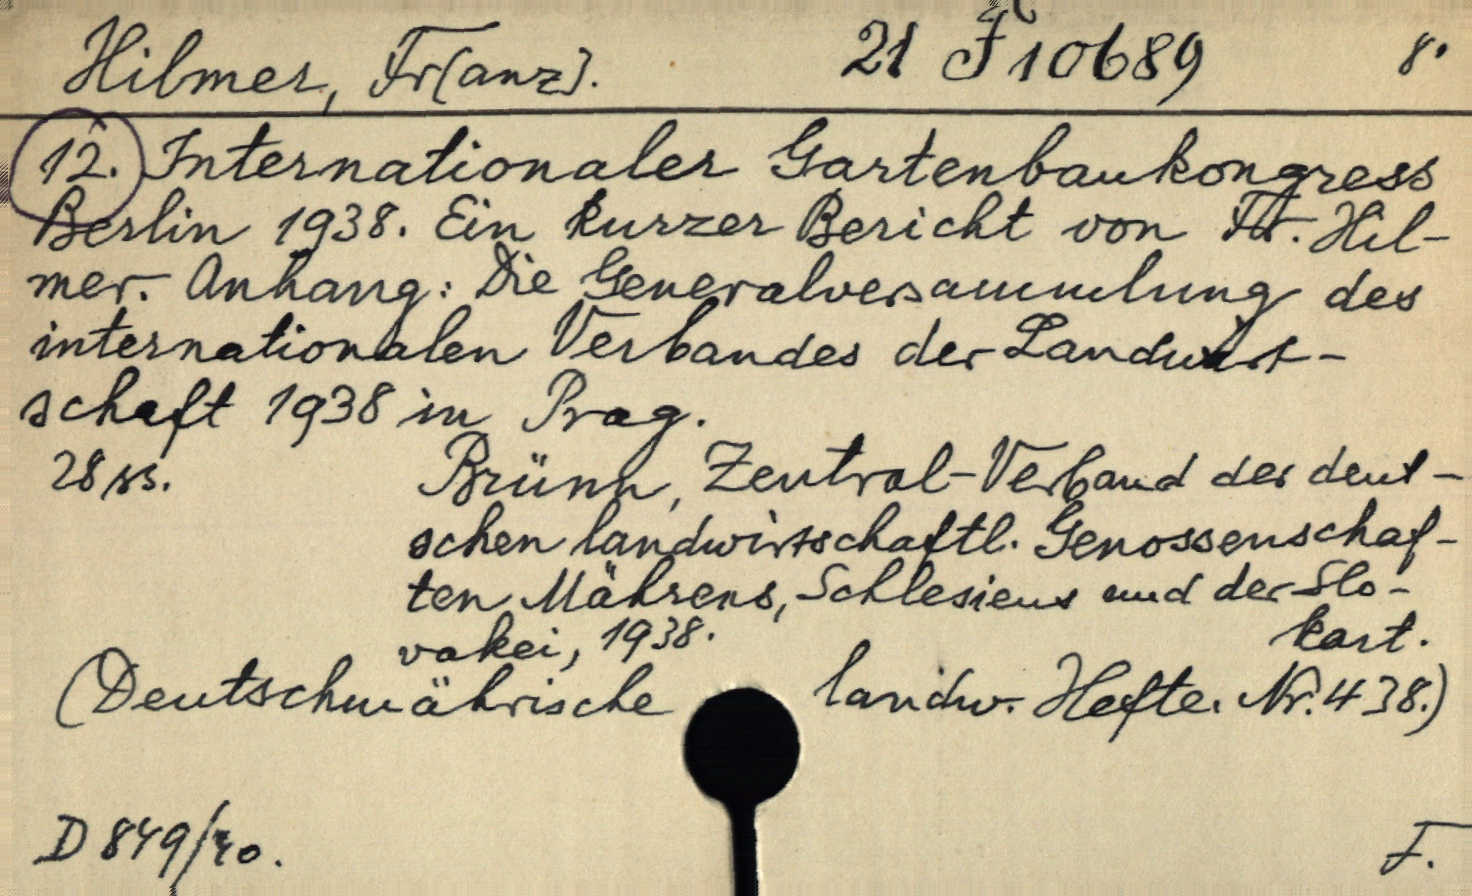 Hilmer, Fr[anz]. 21 J 10689 8°
12. Internationaler Gartenbaukongress
Berlin 1938. Ein kurzer Bericht von Fr. Hil-
mer. Anhang: Die Generalversammlung des
internationalen Verbandes der Landwirt-
schaft 1938 in Prag.
28 ss. Brünn, Zentral-Verband der deut-
schen landwirtschaftl. Genossenschaf-
ten Mährens, Schlesiens und der Slo-
vakei, 1938. kart.
(Deutschmährische landw. Hefte. Nr. 438.)
D 849/40. F.